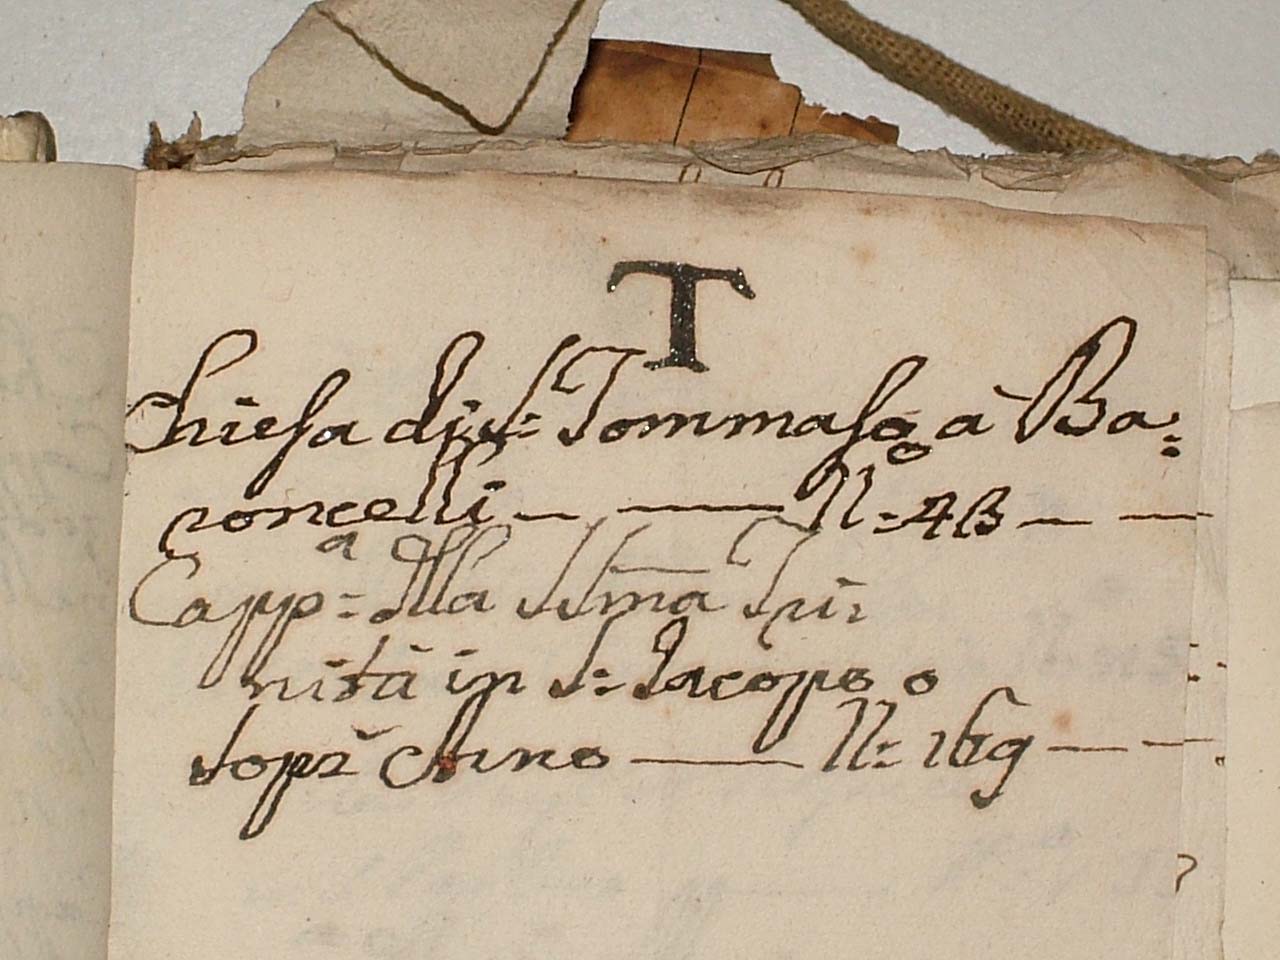 T
Chiesa di S: Tommaso à Ba=
roncelli — — N.º =43 — —
Capp=ª dlla SSma Tri=
nità in S: Jacopo
sopr' Arno — N.º = 169 — —